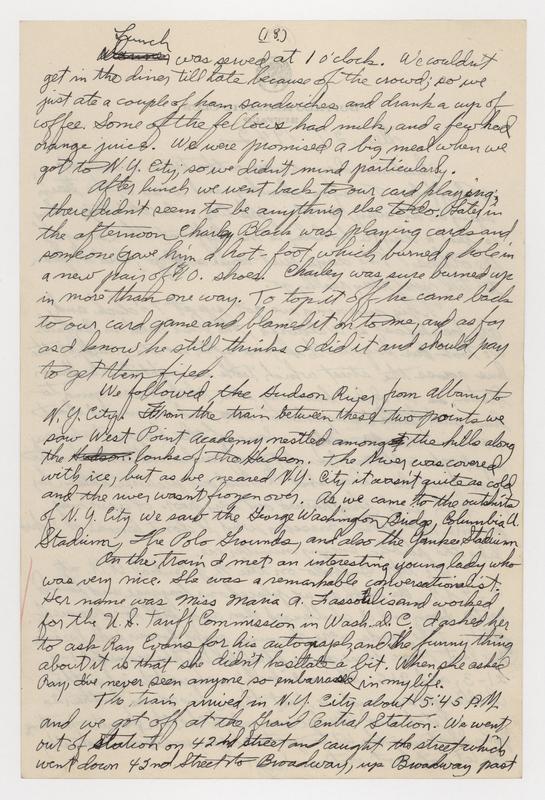 (18)
Lunch
was served at 1 o'clock. We couldn't
get in the diner till late because of the crowd; so we
just ate a couple of ham sandwiches and drank a cup of
coffee. Some of the fellows had milk, and a few had
orange juice. We were promised a big meal when we
got to N.Y. City, so we didn't mind particularly.
After lunch we went back to our card playing;
there didn't seem to be anything else to do. Later in
the afternoon Charley Black was playing cards and
someone gave him a hot-foot, which burned a hole in
a new pair of $10. shoes. Charley was sure burned up
in more than one way. To top it off he came back
to our card game and blamed it on to me, and as far
as I know he still thinks I did it and should pay
to get them fixed.
We followed the Hudson River from Albany to
N.Y. City. From the train between these two points we
saw West Point Academy nestled among the hills along
the banks of the Hudson. The River was covered
with ice, but as we neared N.Y. City it wasn't quite as cold
and the river wasn't frozen over. As we came to the outskirts
of N.Y. City we saw the George Washington Bridge, Columbia U.
Stadium, The Polo Grounds, and also the Yankee Stadium.
On the train I met an interesting young lady who
was very nice. She was a remarkable conversationalist.
Her name was Miss Maria A. and worked
for the U.S. Tariff Commission in Wash. D.C. I asked her
to ask Ray Evans for his autograph, and the funny thing
about it is that she didn't hesitate a bit. When she asked
Ray, I've never seen anyone so embarrassed in my life.
The train arrived in N.Y. City about 5:45 P.M.
and we got off at the Grand Central Station. We went
out of station on 42nd Street and caught the street which
went down 42nd Street to Broadway, up Broadway past